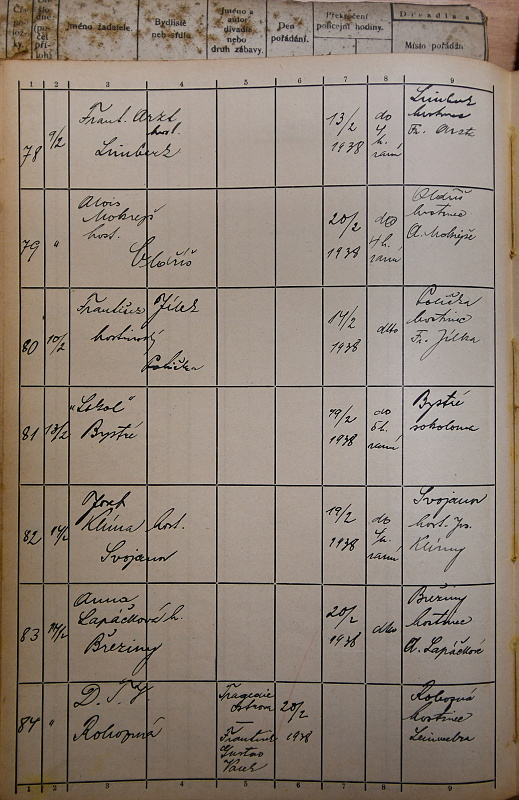 Jméno žadatele.
Bydliště
neb sídlo
Jméno a
autor
divadla
nebo
druh zábavy.
Den
pořádání.
Překročení
policejní hodiny.
Divadla a
Místo pořádán
1 2 3 4 5 6 7 8 9
78
9/2
Frant. Arzt
host.
Limberk
13/2
1938
do
4
h.
ranní
Limberk
hostinec
Fr. Arzt
79
"
Alois
Mokrejš
host.
Oldřiš
20/2
1938
do
4 h.
ranní
Oldřiš
hostinec
A. Mokrejše
80
10/2
František Jílek
hostinský
Polička
17/2
1938
dtto
Polička
hostinec
Fr. Jílka
81
13/2
"Sokol"
Bystré
19/2
1938
do
5 h.
ranní
Bystré
sokolovna
82
14/2
Josef
Klíma host.
Svojanov
19/2
1938
do
ranní
Svojanov
host. Jos.
Klímy
83
Anna
Lapáčková h.
Březiny
20/2
1938
dtto
Březiny
hostinec
A. Lapáčkové
84
"
D.T.J.
Rohozná
Tragedie
František
Gustav
20/2
1938
Rohozná
hostinec
1 2 3 4 5 6 7 8 9